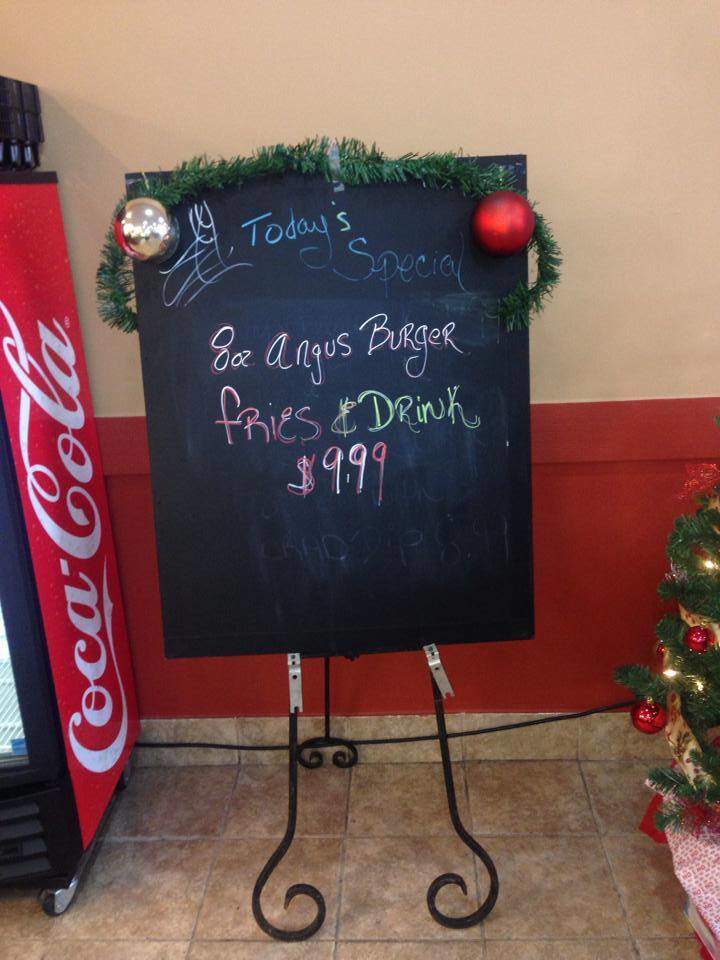 Today's
Special
8oz Angus Burger
Fries & Drink
$9.99
Coca-Cola